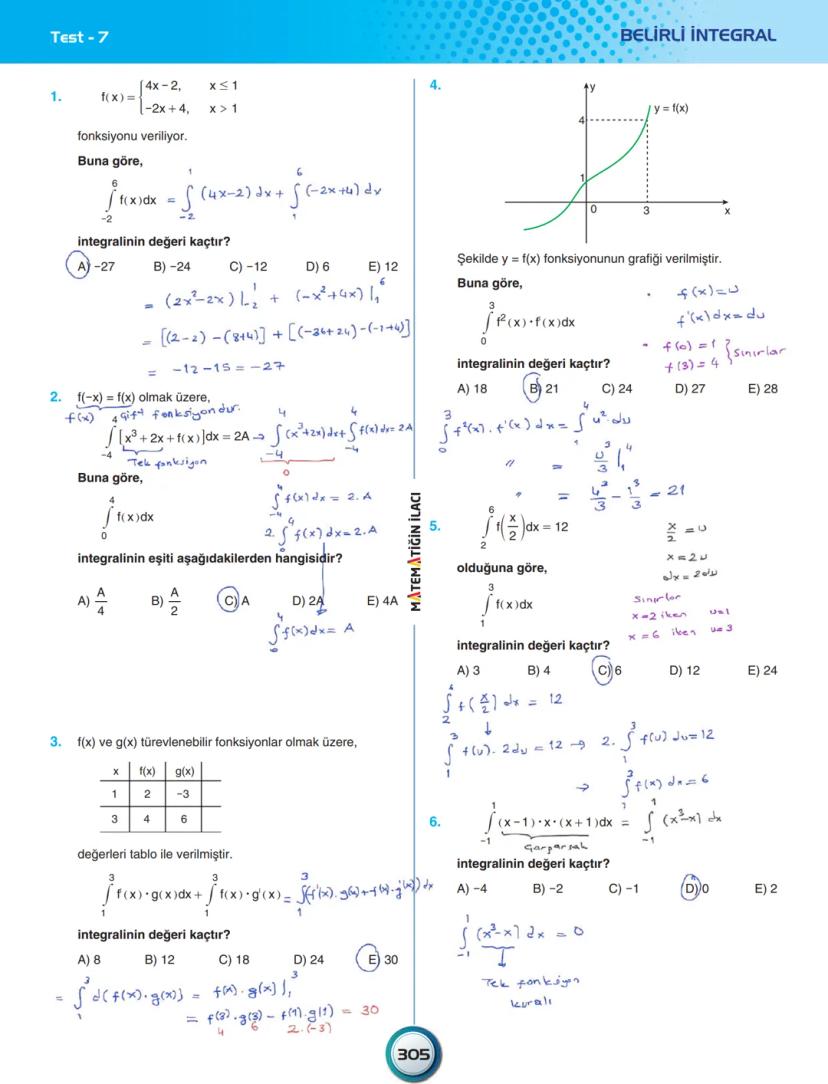 Test - 7
BELİRLİ İNTEGRAL
1. f(x) = { 4x – 2, x ≤ 1
–2x + 4, x > 1
fonksiyonu veriliyor.
Buna göre,
∫_{-2}^{6} f(x)dx = ∫_{-2}^{1} (4x-2) dx + ∫_{1}^{6} (-2x+4) dx
integralinin değeri kaçtır?
A) –27 B) –24 C) –12 D) 6 E) 12
= (2x²-2x) |_{-2}^{1} + (-x²+4x) |_{1}^{6}
= [(2-2) - (8+4)] + [(-36+24) - (-1+4)]
= -12 - 15 = -27
2. f(–x) = f(x) olmak üzere,
f(x) çift fonksiyondur.
∫_{-4}^{4} [x³ + 2x + f(x)]dx = 2A → ∫_{-4}^{4} (x³+2x) dx + ∫_{-4}^{4} f(x) dx = 2A
Tek fonksiyon
0
Buna göre,
∫_{-4}^{4} f(x) dx = 2.A
∫_{0}^{4} f(x)dx
2. ∫_{0}^{4} f(x) dx = 2.A
integralinin eşiti aşağıdakilerden hangisidir?
A) A/4 B) A/2 C) A D) 2A E) 4A
∫_{0}^{4} f(x) dx = A
3. f(x) ve g(x) türevlenebilir fonksiyonlar olmak üzere,
x f(x) g(x)
1 2 –3
3 4 6
değerleri tablo ile verilmiştir.
∫_{1}^{3} f'(x)·g(x)dx + ∫_{1}^{3} f(x)·g'(x) = ∫_{1}^{3} (f'(x).g(x)+f(x).g'(x)) dx
integralinin değeri kaçtır?
A) 8 B) 12 C) 18 D) 24 E) 30
= ∫_{1}^{3} d(f(x).g(x)) = f(x).g(x) |_{1}^{3}
= f(3).g(3) - f(1).g(1) = 30
4 6 2.(-3)
MATEMATİĞİN İLACI
4.
y
y = f(x)
4
1
0 3 x
Şekilde y = f(x) fonksiyonunun grafiği verilmiştir.
Buna göre,
∫_{0}^{3} f²(x)·f'(x)dx
• f(x) = u
f'(x) dx = du
• f(0) = 1
f(3) = 4 } sınırlar
integralinin değeri kaçtır?
A) 18 B) 21 C) 24 D) 27 E) 28
∫_{0}^{3} f²(x).f'(x) dx = ∫_{1}^{4} u².du
" = u³/3 |_{1}^{4}
" = 4³/3 - 1³/3 = 21
5. ∫_{2}^{6} f(x/2)dx = 12
x/2 = u
x = 2u
dx = 2du
olduğuna göre,
∫_{1}^{3} f(x)dx
Sınırlar
x=2 iken u=1
x=6 iken u=3
integralinin değeri kaçtır?
A) 3 B) 4 C) 6 D) 12 E) 24
∫_{2}^{6} f(x/2) dx = 12
∫_{1}^{3} f(u).2du = 12 → 2. ∫_{1}^{3} f(u) du = 12
→ ∫_{1}^{3} f(x) dx = 6
6. ∫_{-1}^{1} (x – 1)·x·(x + 1)dx = ∫_{-1}^{1} (x³-x) dx
Çarparsak
integralinin değeri kaçtır?
A) –4 B) –2 C) –1 D) 0 E) 2
∫_{-1}^{1} (x³-x) dx = 0
Tek fonksiyon
kuralı
305